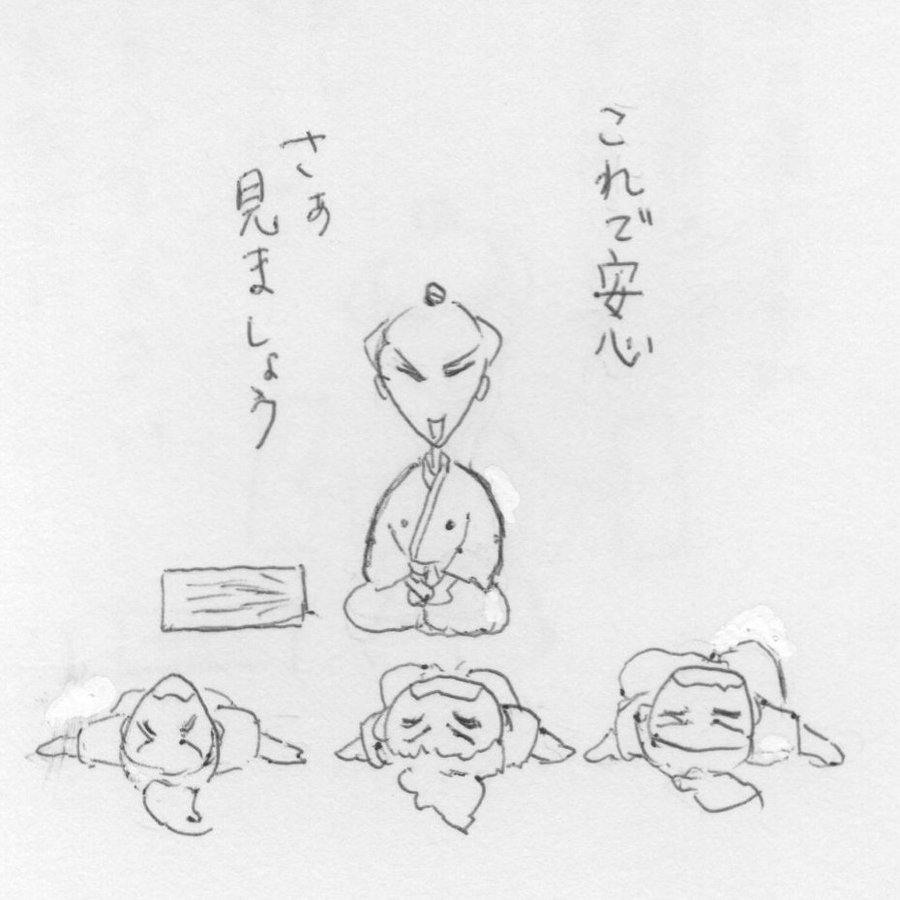 これで安心
さぁ
見ましょう